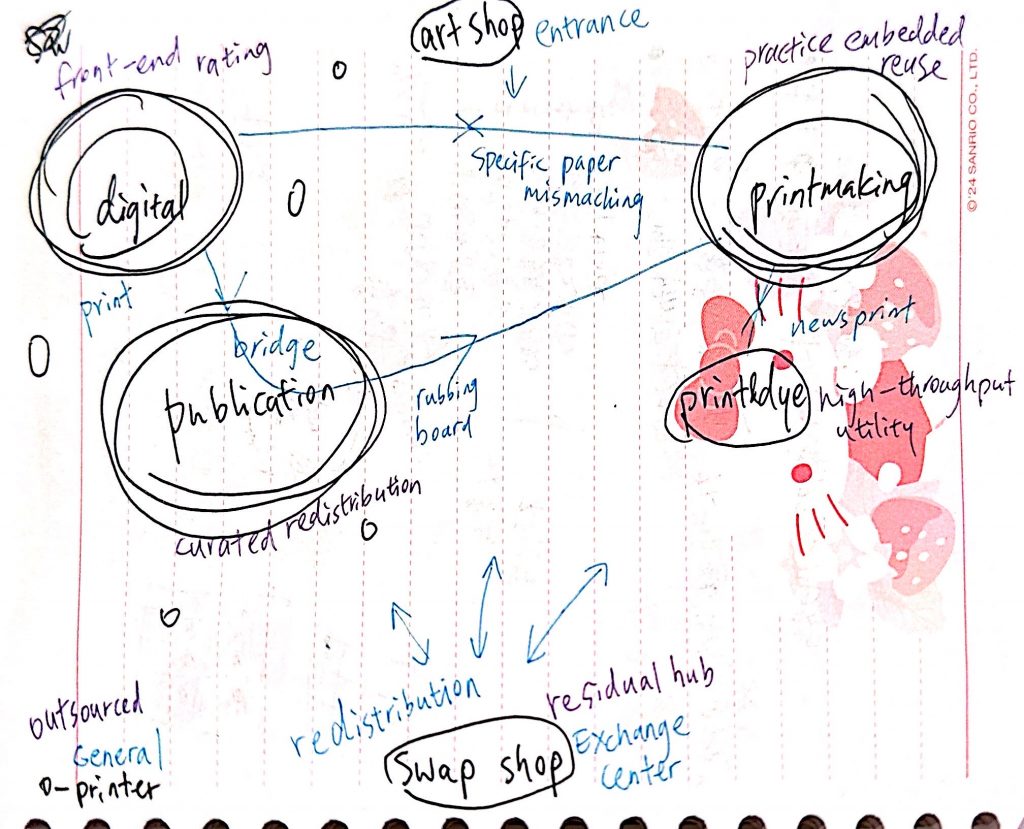 art shop
entrance
front-end rating
practice embedded
reuse
©'24 SANRIO CO., LTD.
digital
Specific paper
mismaching
printmaking
print
bridge
publication
rubbing
board
newsprint
print&dye
high-throughput
utility
curated redistribution
outsourced
General
O-printer
redistribution
residual hub
Swap shop
Exchange
Center